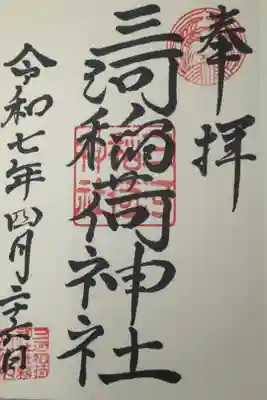 奉拝
三河稲荷神社
令和七年四月二十六日